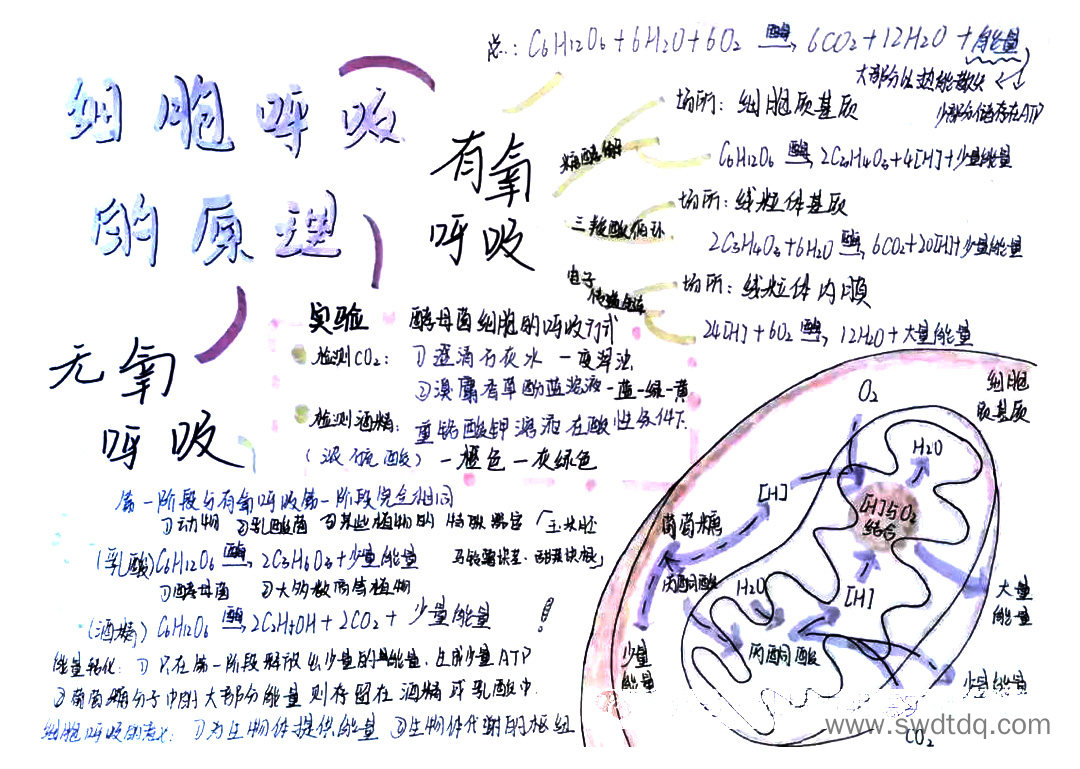 细胞呼吸
的原理
总: C6H12O6+6H2O+6O2 酶→ 6CO2+12H2O+能量
大部分以热能散失
少部分储存在ATP
有氧
呼吸
糖酵解
场所: 细胞质基质
C6H12O6 酶→ 2C3H4O3+4[H]+少量能量
三羧酸循环
场所: 线粒体基质
2C3H4O3+6H2O 酶→ 6CO2+20[H]+少量能量
电子
传递链
场所: 线粒体内膜
24[H]+6O2 酶→ 12H2O+大量能量
实验 酵母菌细胞的呼吸方式
检测CO2: ①澄清石灰水 一变浑浊
②溴麝香草酚蓝溶液-蓝-绿-黄
检测酒精: 重铬酸钾溶液在酸性条件下
(浓硫酸) 一橙色一灰绿色
无氧
呼吸
第一阶段与有氧呼吸第一阶段完全相同
①动物 ②乳酸菌 ③某些植物的特殊器官「玉米胚
马铃薯块茎、甜菜块根」
(乳酸) C6H12O6 酶→ 2C3H6O3+少量能量
①酵母菌 ②大多数高等植物
(酒精) C6H12O6 酶→ 2C2H5OH+2CO2+ 少量能量
能量转化: ①只在第一阶段释放出少量的能量,生成少量ATP
②葡萄糖分子中的大部分能量则存留在酒精或乳酸中
细胞呼吸的意义: ①为生物体提供能量 ②生物体代谢的枢纽
细胞
质基质
O2
H2O
[H]
[H]与O2
结合
葡萄糖
丙酮酸
H2O
[H]
大量
能量
少量
能量
丙酮酸
少量能量
CO2
www.swdtdq.com